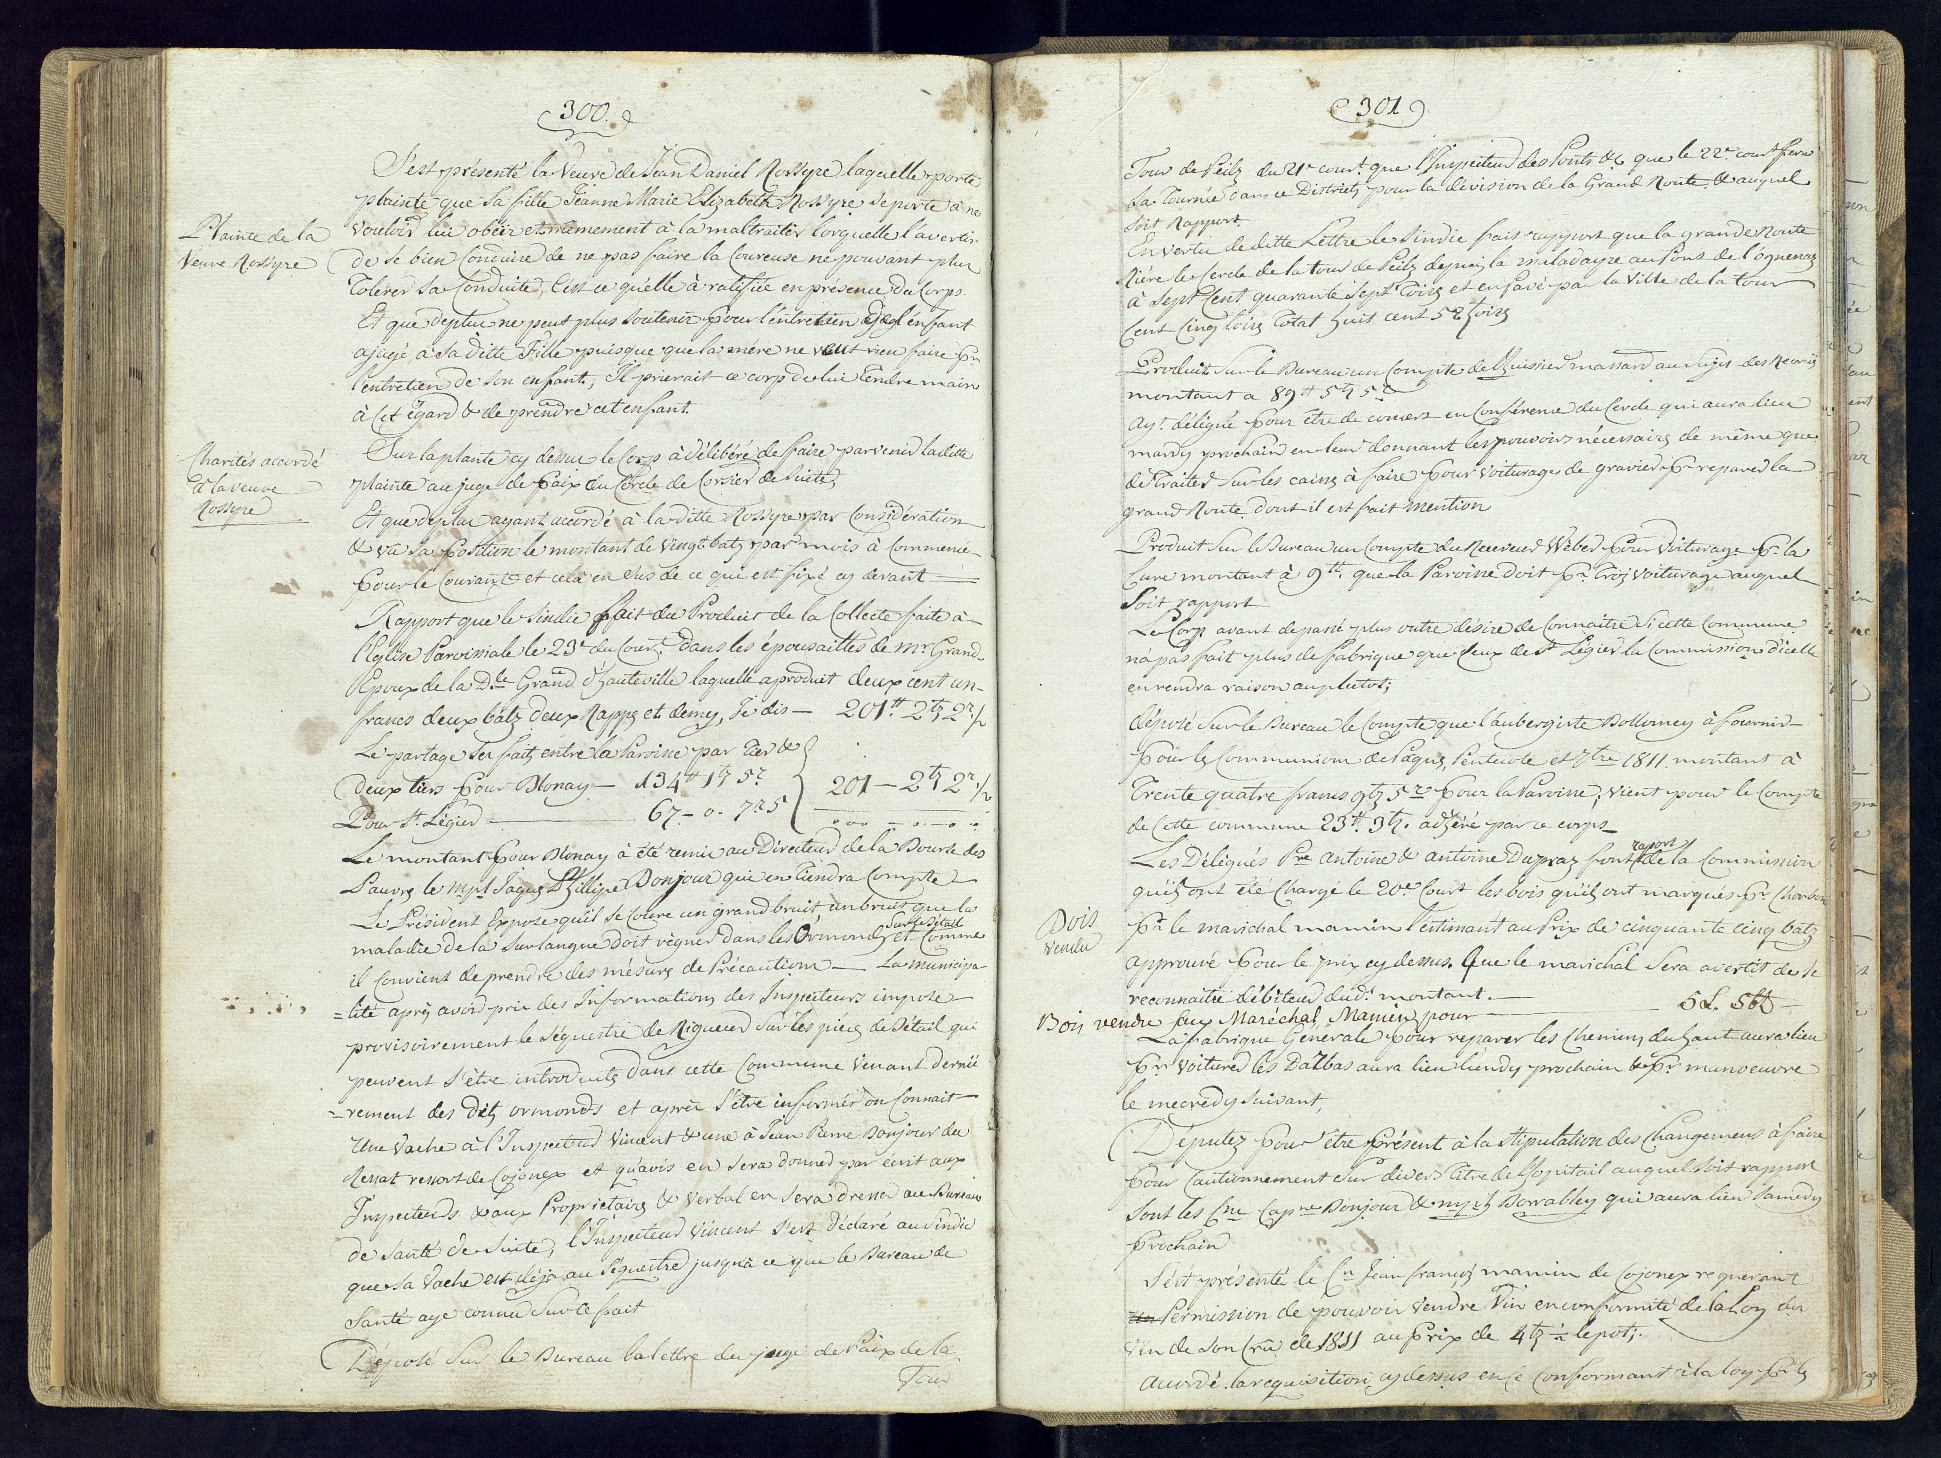 300.
S'est présenté la Veuve de Jean Daniel Rossyre laquelle porte
plainte que sa fille Jeanne Marie Elizabeth Rossyre se porte à ne
Plainte de la
Veuve Rossyre
vouloir lui obéir et mêmement à la maltraiter lorquelle l'avertis
de se bien conduire de ne pas faire la Coureuse ne pouvant plus
Tolérer sa Conduite, C'est ce qu'elle à ratifiée en présence du Corps
Et que deplus ne peut plus soutenir pour l'entretien l'enfant
ajugé à sa ditte fille puisque que la mère ne veut rien faire pr
l'entretien de son enfant, Il prierait ce corp de lui Tendre main
à cet égard & de prendre cet enfant.
Charités accordé
à la veuve
Rossyre
Sur la plante cy dessus le Corp à délibéré de faire parvenir la ditte
plainte au juge de paix du Cercle de Corsier de suite,
Et que deplus ayant accordé à la ditte Rossyre par Considération
& vû sa position le montant de vingt batz par mois à Commencé
pour le Courant et cela en sus de ce qui est fixé cy devant
Rapport que le Sindic fait du Produit de la Collecte faite à
l'Eglise Paroissiale le 23e du Court. dans les épousailles de Mr Grand
Epoux de la D.lle Grand d'hauteville laquelle a produit deux cent un
francs deux batz deux Rapps et demy, Je dis — 201 tt 2 tz 2 r 1/2
Le partage se fait entre la Paroisse par tier &
deux tiers pour Blonay — 134 tt 1 tz 5 r 201 — 2 tz 2 r 1/2
Pour St. Légier — 67 - 0 - 7 r 5
Le montant pour Blonay à été remis au Directeur de la Bourse des
Pauvres le mpl Jaques Phillipe Bonjour qui en tiendra compte
Le Président Expose qu'il se coure un grand bruit un bruit que la
maladie de la surlangue doit règner dans les Ormonds sur le Bétail et Comme
il convient de prendre des mésures de Précaution — La municipa-
=lité après avoir pris des Informations des Inspecteurs impose
provisoirement le séquestre de Rigueur sur les pièces de Bétail qui
peuvent s'être introduits dans cette Commune venant derniè
=rement des Dits ormonds et après s'être informér on Connait
une vache à l'Inspecteur Vincent & une à Jean Pierre Bonjour du
ressort de Cojonex et qu'avis en sera donner par écrit aux
Inspecteurs & aux Proprietaires & Verbal en sera dressé au Bureau
de Santé de suite, l'Inspecteur Vincent s'est déclaré au Sindic
que sa vache est déjà au Séquestre jusqu'à ce que le Bureau de
Santé aye connu sur le fait
Déposé sur le Bureau la lettre du juge de Paix de la
Tour
301
Tour de Peilz du 21e court. que l'Inspecteur des Ponts &c que le 22e court fera
sa Tournée dans ce District pour la division de la Grand Route. & auquel
soit Rapport.
En vertu de ditte Lettre le Sindic fait rapport que la grande Route
Riére le Cercle de la tour de Peilz depuis la maladayre au Pont de l'ognonaz
à sept Cent quarante sept Toises et en Pavé par la Ville de la tour
Cent Cinq toises Total huit cent 52 toises
Produit sur le Bureau un Compte de l'huissier massard au sujet des
montant a 89 tt 5 tz 5 r
Ayt. délégué pour être de concert en Conférence du Cercle qui aura lieu
mardy prochain en leur donnant les pouvoirs nécessaires de même que
de Traiter sur les à faire pour voiturages de gravier pr reparer la
grand Route. dont il est fait mention
Produit sur le Bureau un Compte du Receveur Weber pour voiturage pr. la
Cure montant à 9 tt. que la Paroisse doit pr. Trois voiturage auquel
soit rapport
Le Corp avant de passé plus outre désire de Connaitre si cette Commune
n'a pas fait plus de fabrique que Ceux de St Légier la Commission d'icelle
en rendra raison au plutot;
déposé sur le Bureau le Compte que l'aubergiste Dollomey à fournir
pour les Communion de Paques, Pentecote et 7bre 1811. montant à
Trente quatre francs 9 tz 5 r pour la Paroisse; vient pour le Compte
de Cette commune 23 tt. 3 tz. adhéré par ce corps
Les Délégués Pre antoine & antoine Dupraz font raport de la Commission
quils ont été Chargé le 20e Court les bois quils ont marqués pr. Charbon
Bois
vendu
pr le marichal mamin l'estimant au Prix de cinquante cinq batz
approuvé pour le prix cy dessus. Que le marichal sera avertit de se
reconnaitre débiteur dudt. montant. — 5 L. 5 bt
Bois vendu au Maréchal Mamin pour
La fabrique Generale pour reparer les Chemins du haut aura lieu
pr voiturer les Dalbas aura lieu lundy prochain & pr manoeuvre
le mecredy suivant,
Députez pour être présent à la stipulation des Changemens à faire
pour Cautionnement sur divers titre de l'hopitail auquel soit rapport
sont les Cne Capne Bonjour & mpl Borralley qui aura lieu samedy
prochain
S'est présenté le Cn Jean françois mamin de Cojonex requerant
Permission de pouvoir Vendre Vin en conformité de la Loy du
vin de son Cru de 1811 au prix de 4 tz le pot;
Accordé. la requisition cy dessus en se Conformant à la loy pr ls